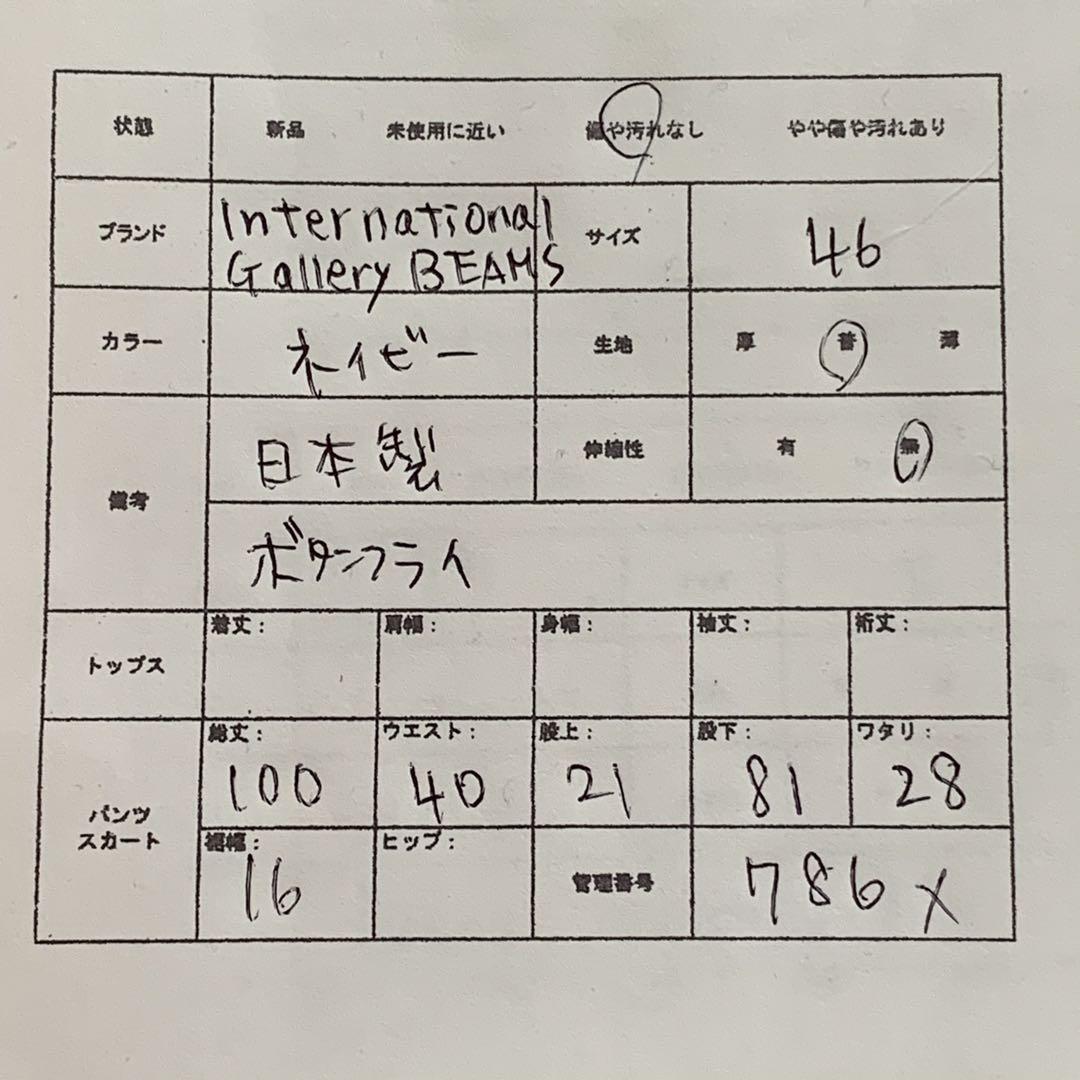 状態 新品 未使用に近い 傷や汚れなし やや傷や汚れあり
ブランド International Gallery BEAMS サイズ 46
カラー ネイビー 生地 厚 普 薄
備考 日本製 伸縮性 有 無
ボタンフライ
トップス 着丈: 肩幅: 身幅: 袖丈: 裄丈:
パンツ スカート 総丈: 100 ウエスト: 40 股上: 21 股下: 81 ワタリ: 28
裾幅: 16 ヒップ: 管理番号 786 X